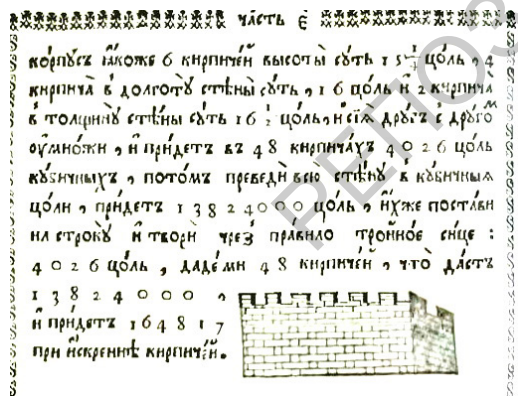 часть є҃
ко́рпусъ ꙗ҆́коже 6 кирпиче́й высоты̀ сꙋ́ть 15 1/4 цо́ль , 4
кирпича̀ в̾ долготꙋ̀ стѣны̀ сꙋ́ть , 16 цо́ль и҆ 2 кирпича̀
в̾ толщинꙋ̀ стѣны̀ сꙋ́ть 16 1/2 цо́ль , и҆ сїѧ̀ дрꙋ́гъ с̾ дрꙋго́м
ѹ҆мно́жи , и҆ при́детъ въ 48 кирпича́хъ 4026 цо́ль
кꙋби́чныхъ , пото́мъ преведѝ всю̀ стѣ́нꙋ в̾ кꙋби́чныѧ
цо́ли , при́детъ 13824000 цо́ль , и҆́хже поста́ви
на строкꙋ̀ и҆ творѝ чрез̾ пра́вило тройно́е си́це :
4026 цо́ль , даде́ ми 48 кирпиче́й , что̀ да́стъ
13824000 ,
и҆ при́детъ 164817
при и҆́скреннѣ кирпиче́й .
РЕПОЗ